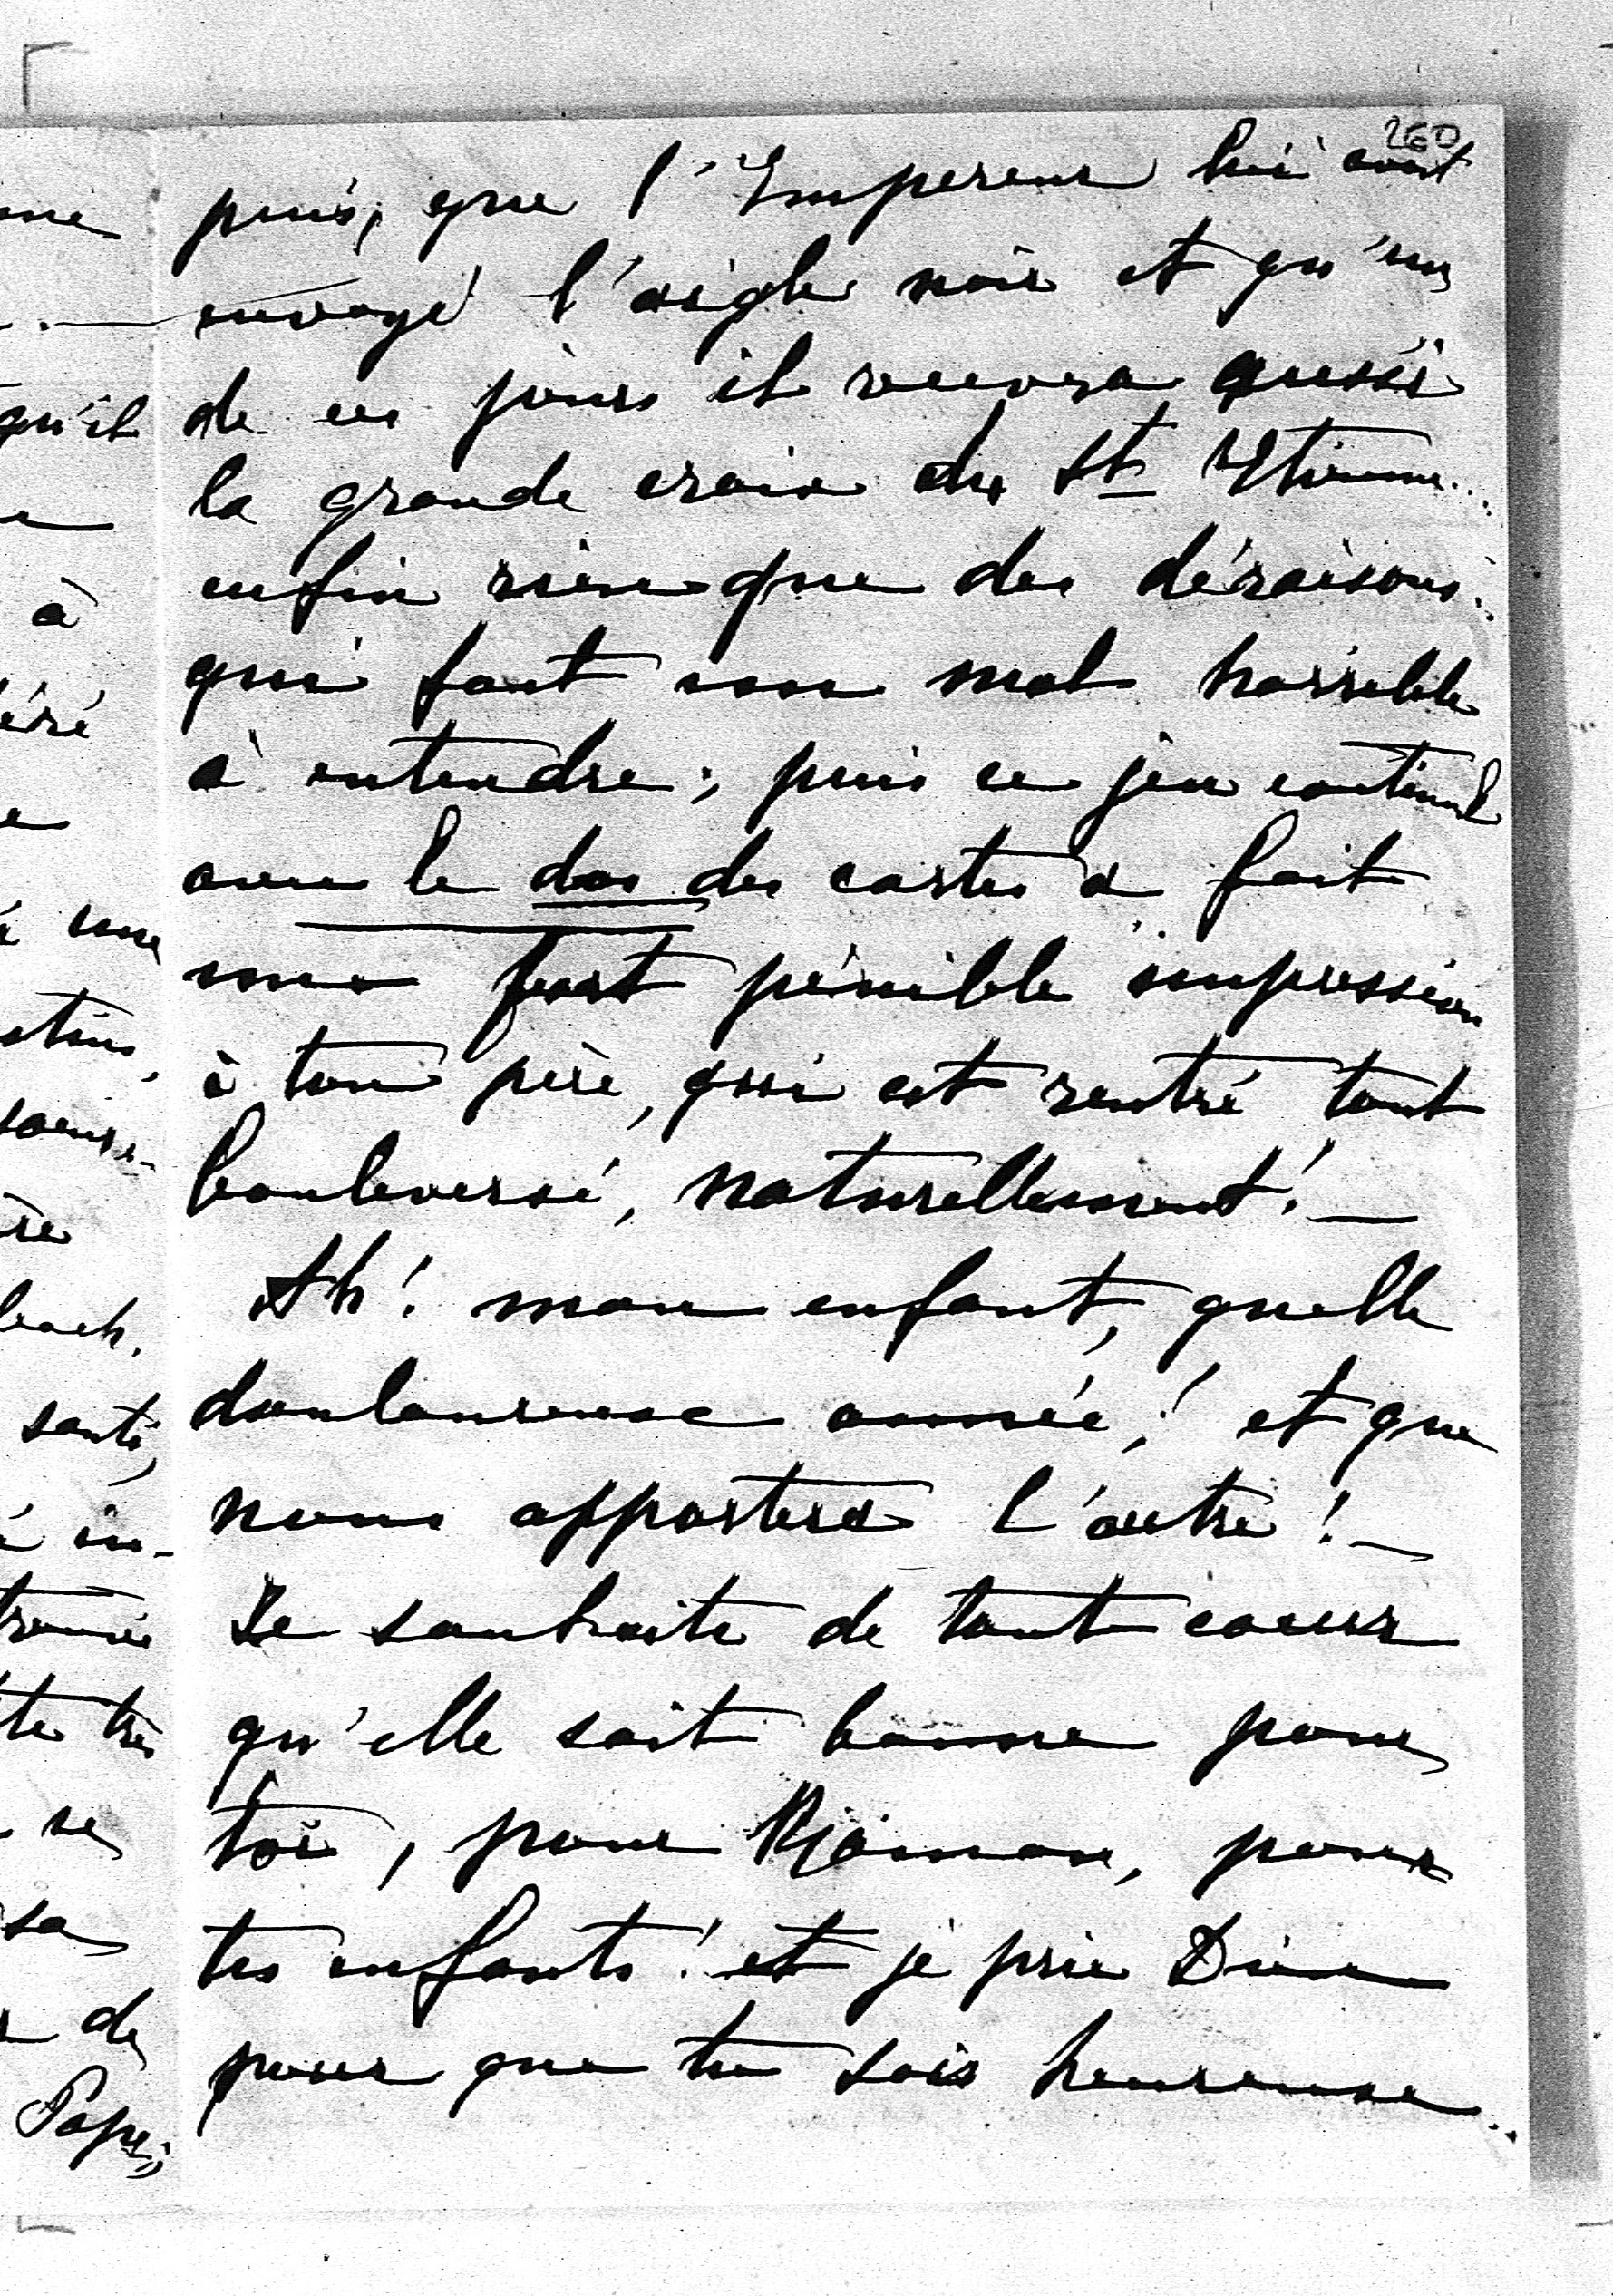 260
puis, que l'Empereur lui avait
envoyé l'aigle noir et qu'un
de ces jours il recevra aussi
la grande croix de St Etienne...
enfin rien que des déraisons..
qui font mal horrible
à entendre; puis ce jeu continuel
avec le dos des cartes a fait
une fort pénible impression
à ton père, qui est rentré tout
bouleversé, naturellement! —
Ah! mon enfant, quelle
douloureuse année! et que
nous apportera l'autre! —
Je souhaite de tout coeur
qu'elle soit bonne pour
toi, pour, pour
tes enfants! et je prie Dieu
pour que tu sois heureuse..
qu'il
à
une
santé,
de
Pape